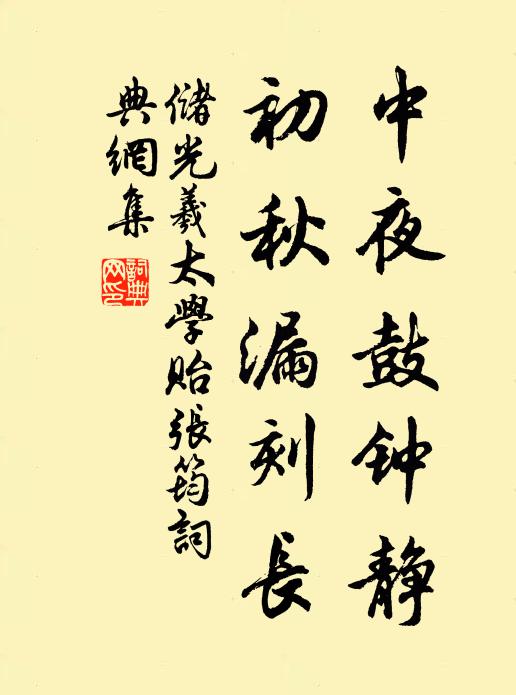 中夜鼓钟静
初秋漏刻長
儲光羲太學貽張筠詞
典網集
詞典
网印